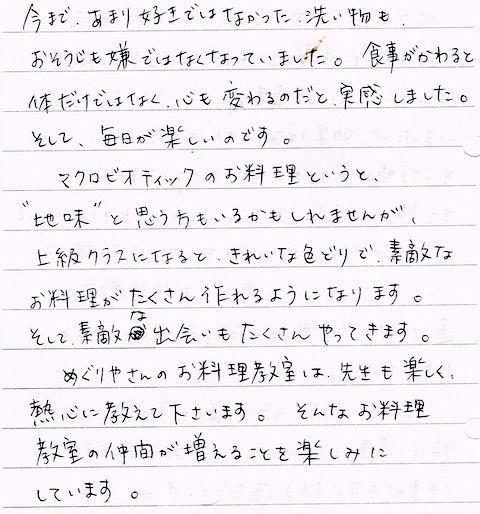 今まで、あまり好きではなかった、洗い物も、
おそうじも嫌ではなくなっていました。食事がかわると
体だけではなく、心も変わるのだと、実感しました。
そして、毎日が楽しいのです。
マクロビオティックのお料理というと、
"地味"と思う方もいるかもしれませんが、
上級クラスになると、きれいな色どりで、素敵な
お料理がたくさん作れるようになります。
そして、素敵な出会いもたくさんやってきます。
めぐりやさんのお料理教室は、先生も楽しく、
熱心に教えて下さいます。そんなお料理
教室の仲間が増えることを楽しみに
しています。